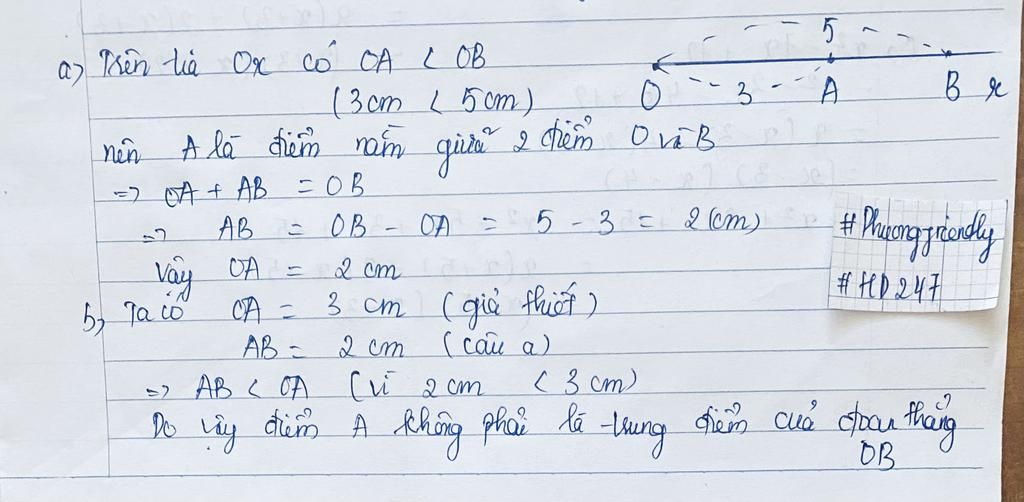 a) Trên tia Ox có OA < OB
(3cm < 5cm)
5
O 3 A B x
nên A là điểm nằm giữa 2 điểm O và B
=> OA + AB = OB
=> AB = OB - OA = 5 - 3 = 2 (cm)
Vậy OA = 2 cm
b, Ta có OA = 3 cm (giả thiết)
AB = 2 cm (câu a)
=> AB < OA (vì 2cm < 3cm)
Do vậy điểm A không phải là trung điểm của đoạn thẳng
OB
# Phuongfriendly
# HD247